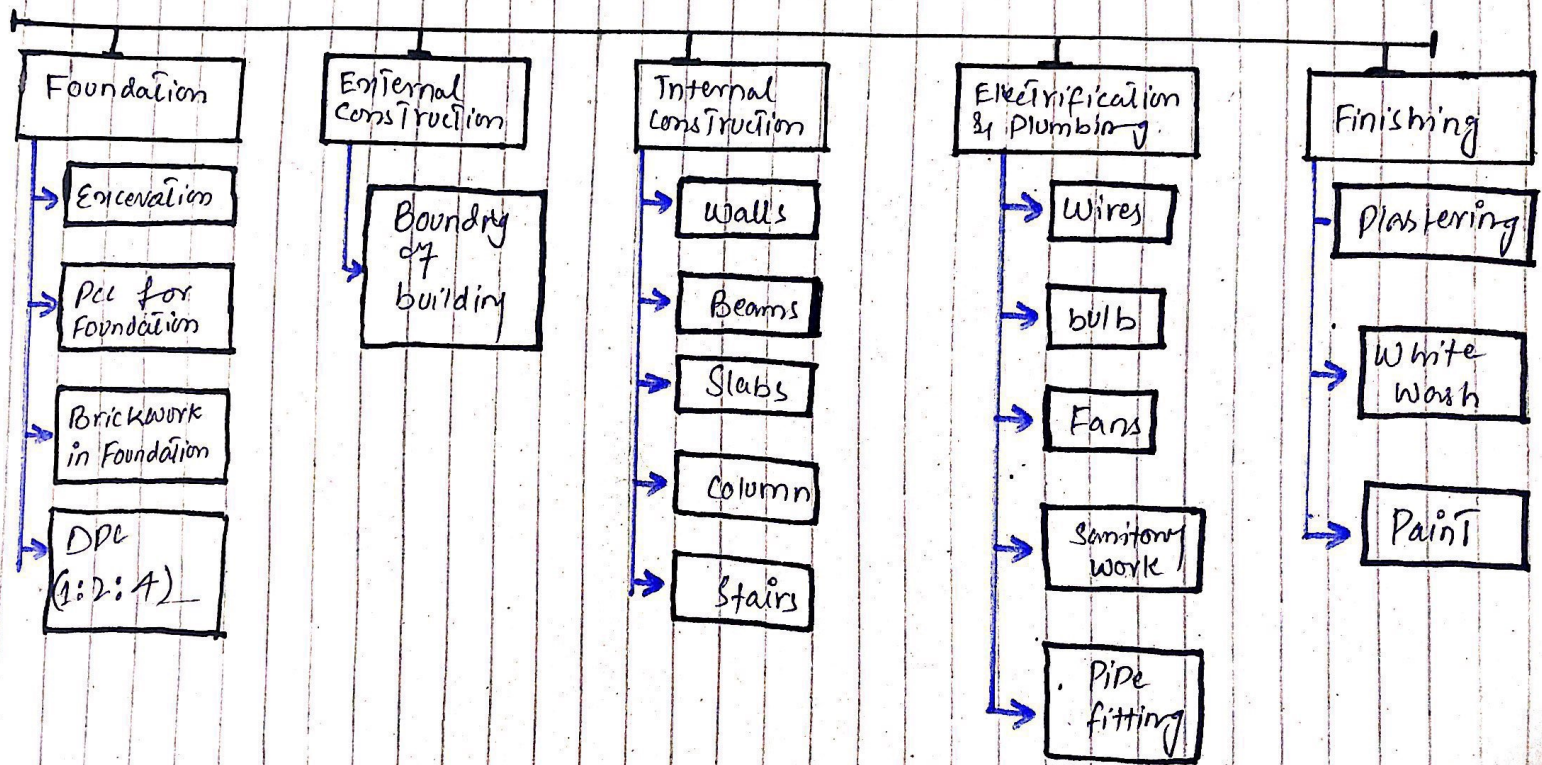 Foundation
Excavation
PCC for
Foundation
Brickwork
in Foundation
DPC
(1:2:4)
External
Construction
Boundry
of
building
Internal
Construction
Walls
Beams
Slabs
Column
Stairs
Electrification
& Plumbing
Wires
bulb
Fans
Sanitory
work
Pipe
fitting
Finishing
Plastering
White
Wash
Paint